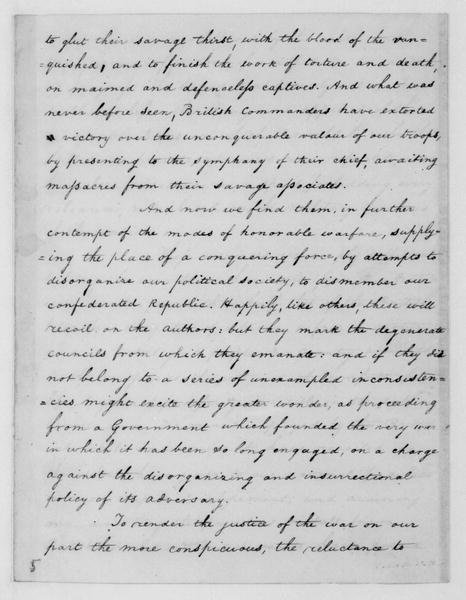 to glut their savage thirst, with the blood of the van=
=quished, and to finish the work of torture and death,
on maimed and defenceless captives. And what was
never before seen, British Commanders have extorted
victory over the unconquerable valour of our troops,
by presenting to the symphany of their chief, awaiting
massacres from their savage associates.
And now we find them, in further
contempt of the modes of honorable warfare, supply=
=ing the place of a conquering force, by attempts to
disorganize our political society, to dismember our
confederated Republic. Happily, like others, these will
recoil on the authors: but they mark the degenerate
councils from which they emanate: and if they did
not belong to a series of unexampled inconsisten=
=cies might excite the greater wonder, as proceeding
from a Government which founded the very war
in which it has been so long engaged, on a charge
against the disorganizing and insurrectional
policy of its adversary.
To render the justice of the war on our
part the more conspicuous, the reluctance to
5